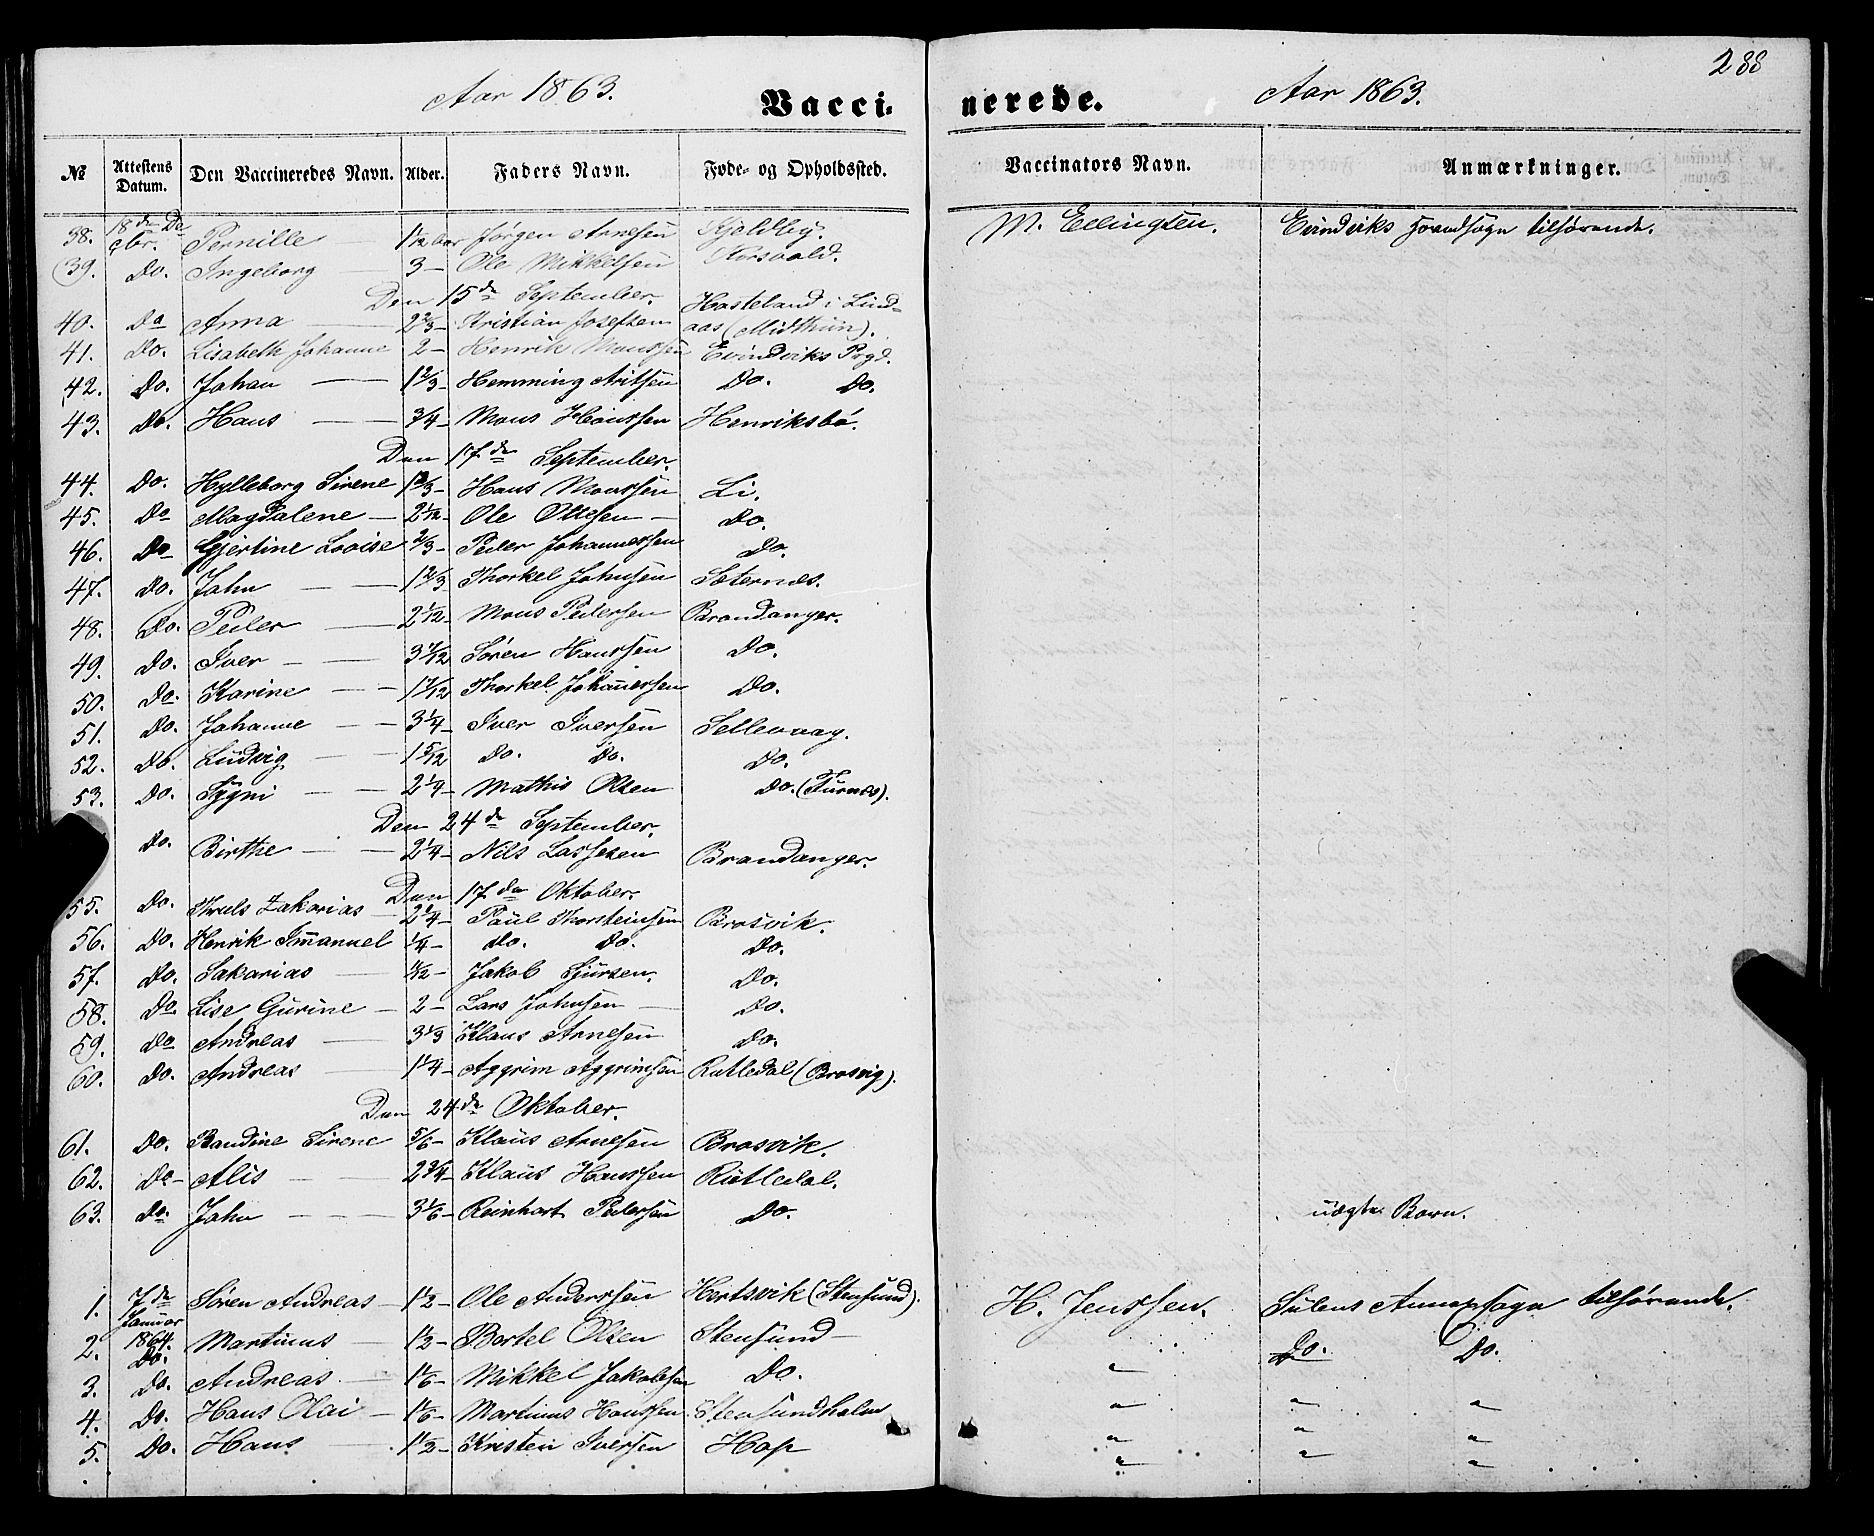 288
Aar 1863. Vacci- nerede. Aar 1863.
№ Attestens Datum. Den Vaccineredes Navn. Alder. Faders Navn. Føde- og Opholdssted. Vaccinators Navn. Anmærkninger.
38. 18de Decbr. Pernille 1 1/12 Jørgen Arnesen Kjeldby. M. Ellingsen. Evindviks tilhørende.
39. Do. Ingeborg 3 – Ole Mikkelsen
Den 15de September.
40. Do Anna 2 2/3 – Kristian Josefsen Hosteland i Lindaas (Midthun).
41. Do. Lisabeth Johanne 2 – Henrik Monssen Evindviks Prgd.
42. Do. Johan 1 2/3 – Hemming Do. Do.
43. Do. Hans 3/4 – Mons Hanssen Henriksbø.
Den 17de September.
44. Do. Hylleborg Sirene 1 2/3 – Hans Monssen Li.
45. Do Magdalene – 2 1/12 – Ole Ollesen – Do.
46. Do Gjertine Lovise 2/3 – Peder Johannessen Do.
47. Do. John 1 2/3 Thorkel Johnsen Sæternes.
48. Do. Peder 2 1/12 – Mons Pedersen Brandanger.
49. Do. Iver 3 7/12 Søren Hanssen Do.
50. Do. Karine 1 7/12 Thorkel Johannessen Do.
51. Do. Johanne 3 1/4 – Iver Iversen Sellevaag.
52. Do. Ludvig 1 5/12 Do. Do. Do.
53. Do. Sygni 2 1/4 – Mathis Olsen Do. (Furnes).
Den 24de September.
Do. Birthe 2 1/4 – Nils Lassesen Brandanger.
Den 17de Oktober.
55. Do. Thruls Zakarias 2 1/4 – Paul Thorsteinsen Brosvik.
56. Do. Henrik Immanuel 1/4 – Do. Do. Do.
57. Do. Sakarias Jakob Sjursen. Do.
58. Do. Lise Gurine – 2 – Lars Johnsen – Do.
59. Do Andreas 3 1/3 Klaus Arnesen Do.
60. Do. Andreas 1 1/4 – Aggrim Aggrimsen Rutledal (Brosvig).
Den 24de Oktober.
61. Do. Randine Sirene 5/6 – Klaus Arnesen Brosvik.
62. Do – Alis 2 3/4 – Klaus Hanssen Rutledal.
63. Do. John 3 1/6 – Reinhart Pedersen Do. uægte Barn.
1. 7de Januar 1864. Søren Andreas – 1 1/2 – Ole Anderssen Hertsvik (Stensund). H. Jenssen. Sulens Annexsogn tilhørende.
2. Do. Martinus – 1/2 – Bertel Olsen Stensund – " Do. Do.
3. Do. Andreas – 1 1/6 – Mikkel Jakobsen Do. " " "
4. Do. Hans Olai – 1 1/6 – Martinus Hanssen Stensundholm " " "
5. Do. Hans 1 1/2 – Kristen Iversen Hop " " "